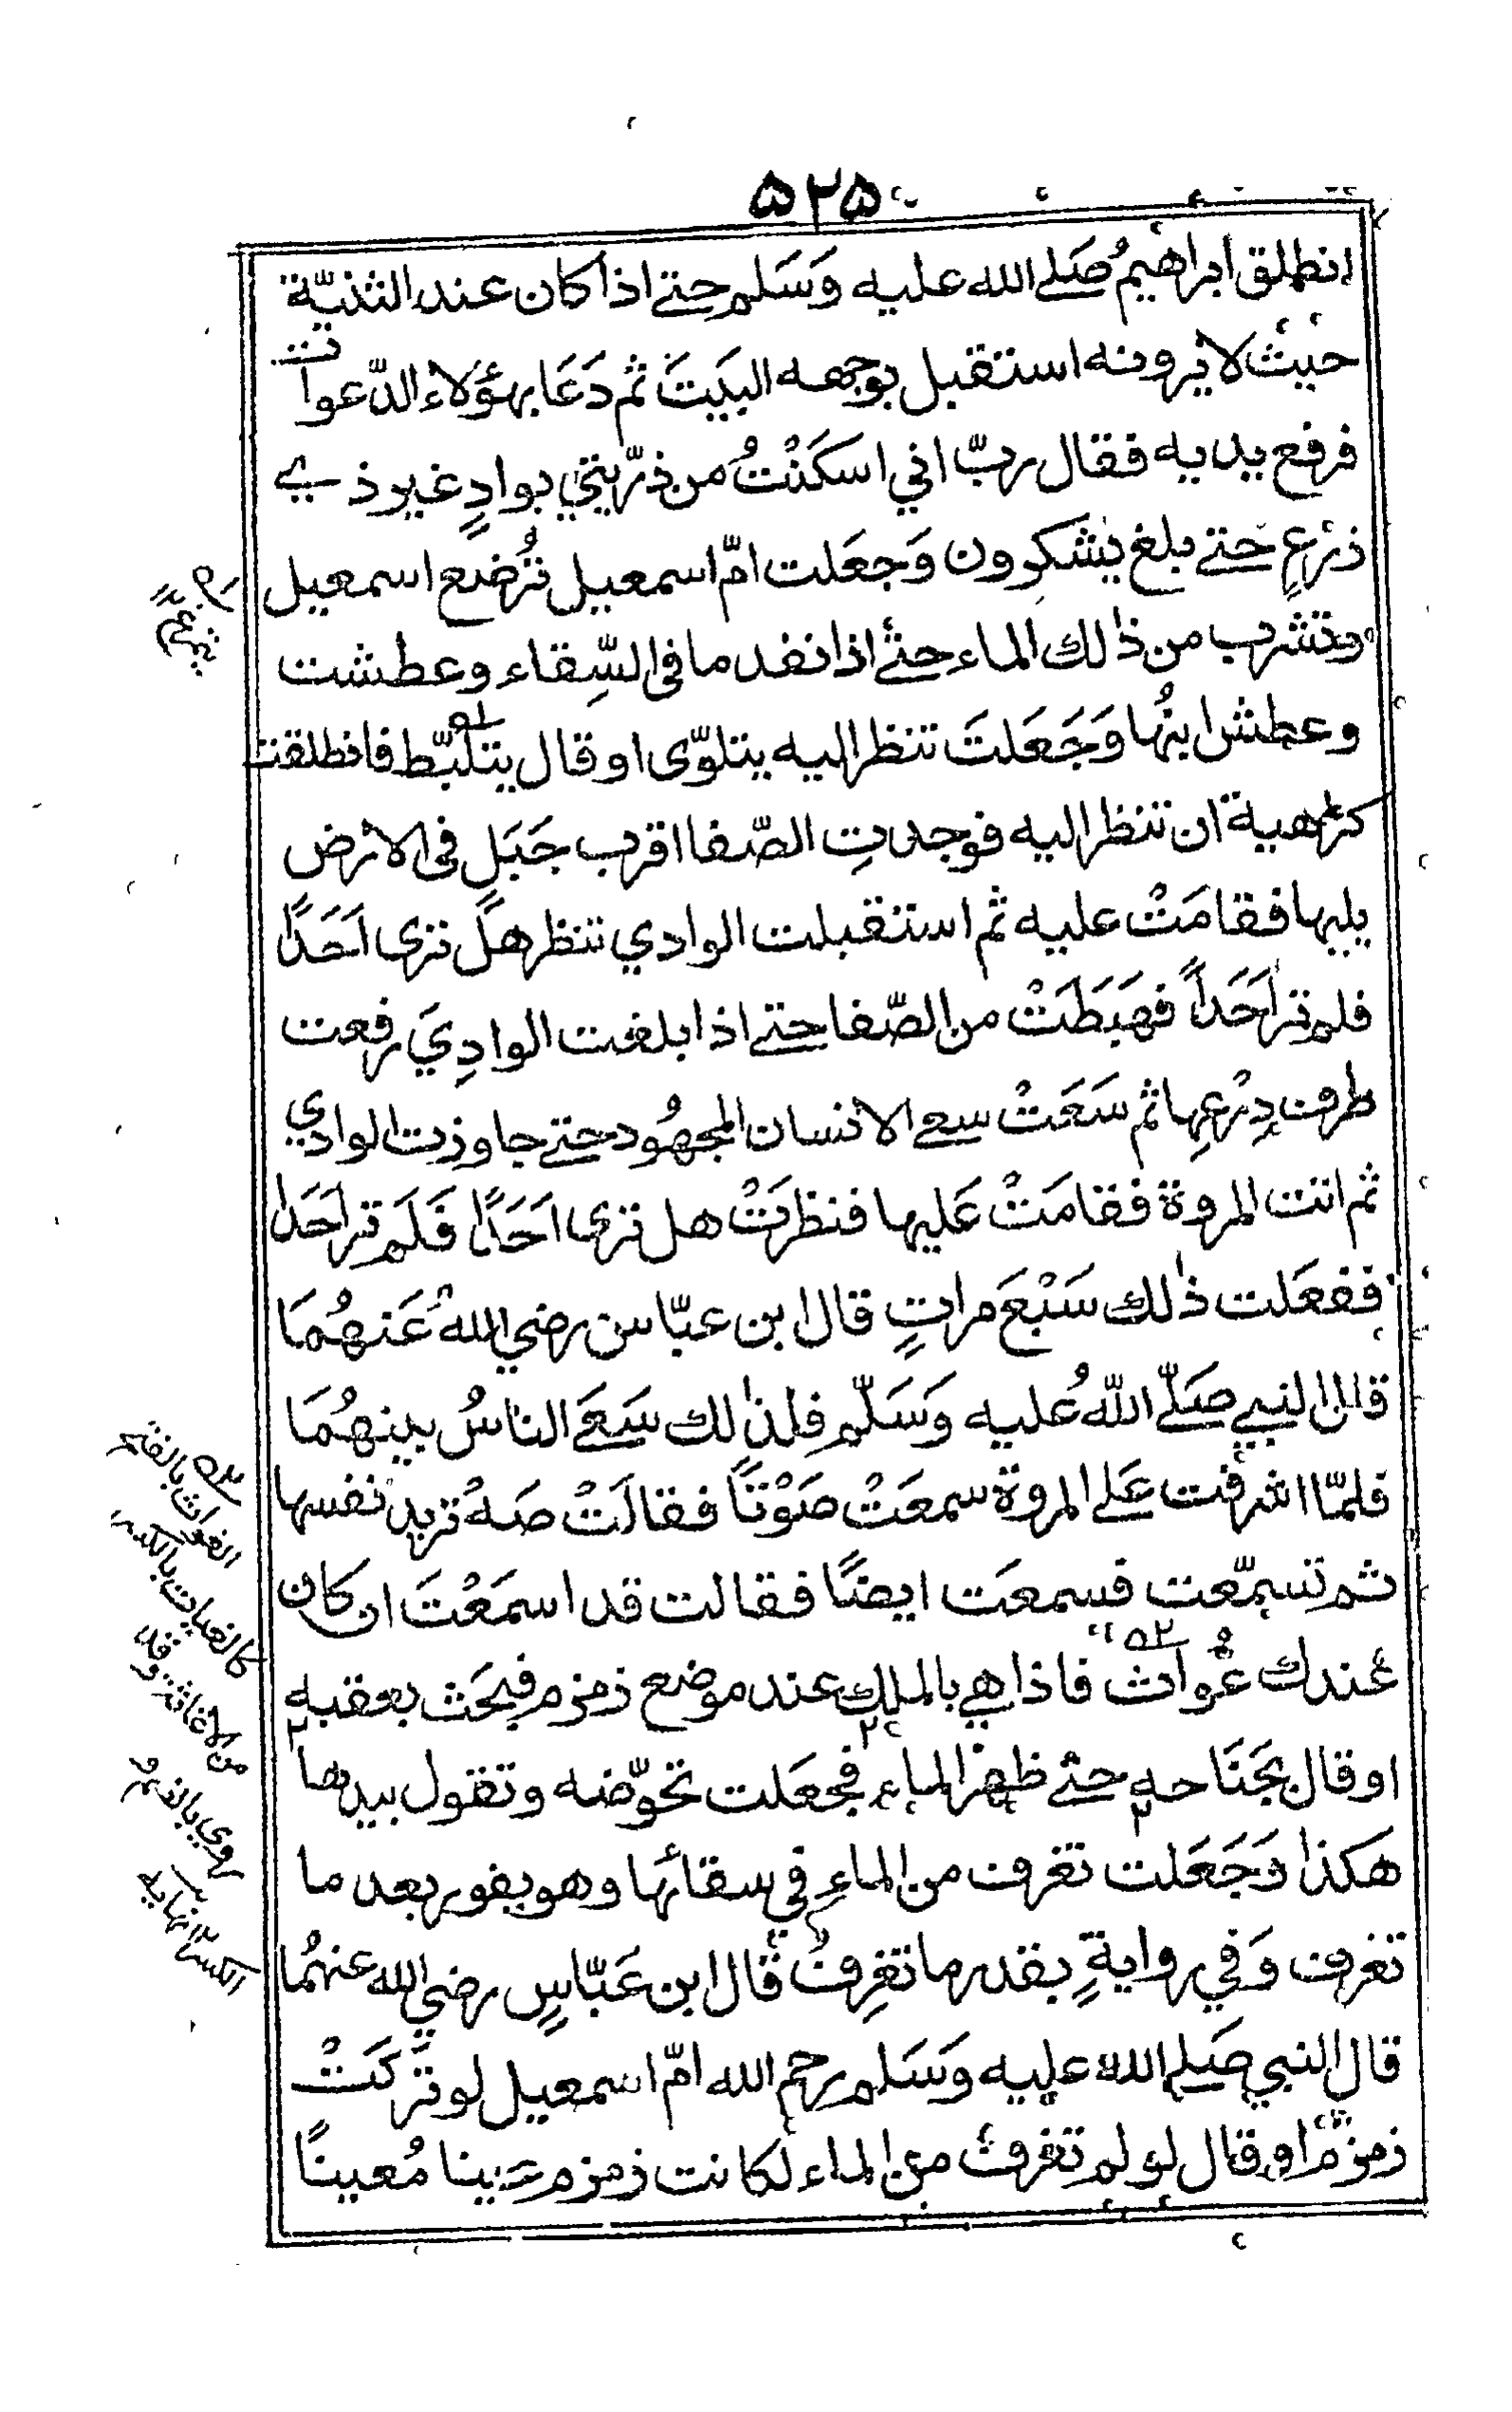 ۵۲۵
انطلق ابراهيمُ صَلى الله عليه وَسَلم حتى اذا كان عند الثنيّة
حيث لا يرونه استقبل بوجهه البَيتَ ثم دَعَا بهؤلاء الدّعوات
فرفع يديه فقال ربّ اني اسكَنْتُ من ذرّيتي بوادٍ غير ذي
زرعٍ حتى بلغ يشكرون وَجعَلت امّ اسمعيل تُرضع اسمعيل
وتشرب من ذلك الماء حتى اذا نفد ما في السِّقاء وعطشت
وعطش ابنُها وَجَعَلتَ تنظر اليه يتلوّى او قال يتلبّط فانطلقت
كراهية ان تنظر اليه فوجدتِ الصّفا اقرب جَبَلٍ في الارض
يليها فقامَتْ عليه ثم استقبلت الوادي تنظر هل ترى اَحَدًا
فلم تر اَحَداً فهَبَطَتْ من الصّفا حتى اذا بلغت الوادِيَ رفعت
طرف دِرْعِها ثم سَعَتْ سعى الانسان المجهُود حتى جاوزت الوادي
ثم اتت المروة فقامَتْ عَليها فنظرَتْ هل ترى اَحَدًا فَلَم تر اَحَدا
ففعَلت ذلك سَبْعَ مراتٍ قال ابن عبّاس رضي اللهُ عَنهُمَا
قال النبي صَلّى اللّهُ عليه وَسَلّم فلذلك سَعَى الناسُ بينهُمَا
فلمّا اشرفت عَلى المروة سمعَتْ صَوْتًا فقالَتْ صَهْ تريد نفسها
ثم تسمّعت فسمعَت ايضًا فقالت قد اسمَعْتَ ان كان
عندك غُواث فاذا هي بالملك عند موضع زمزم فبحَث بعقبه
او قال بجَنَاحه حتى ظهر الماء فجعَلت تحوّضه وتقول بيدها
هكذا وَجَعَلت تغرف من الماءِ في سقائها وهو يفور بعد ما
تغرف وَفي روايةٍ بقدر ما تغرِفُ قال ابن عَبّاسٍ رضي الله عنهُما
قال النبي صَلى الله عليه وَسَلم رحم الله امّ اسمعيل لو تَرَكَتْ
زمزم او قال لو لم تغرف من الماء لكانت زمزم عَينا مُعينًا
الغواث بالفتح
كالغياث بالكسر
من الاغاثة وقد
روي بالضم و
الكسر نهايه